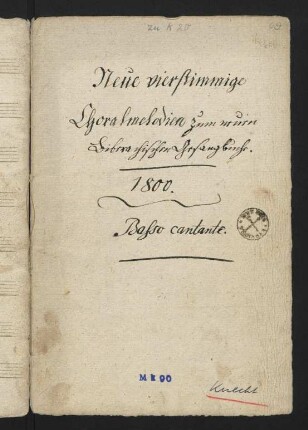 zu K 211
Neue vierstimmige
Choralmelodien zum neuen
Biberachischen Gesangbuche.
1800.
Basso cantante.
M E 90
Knecht